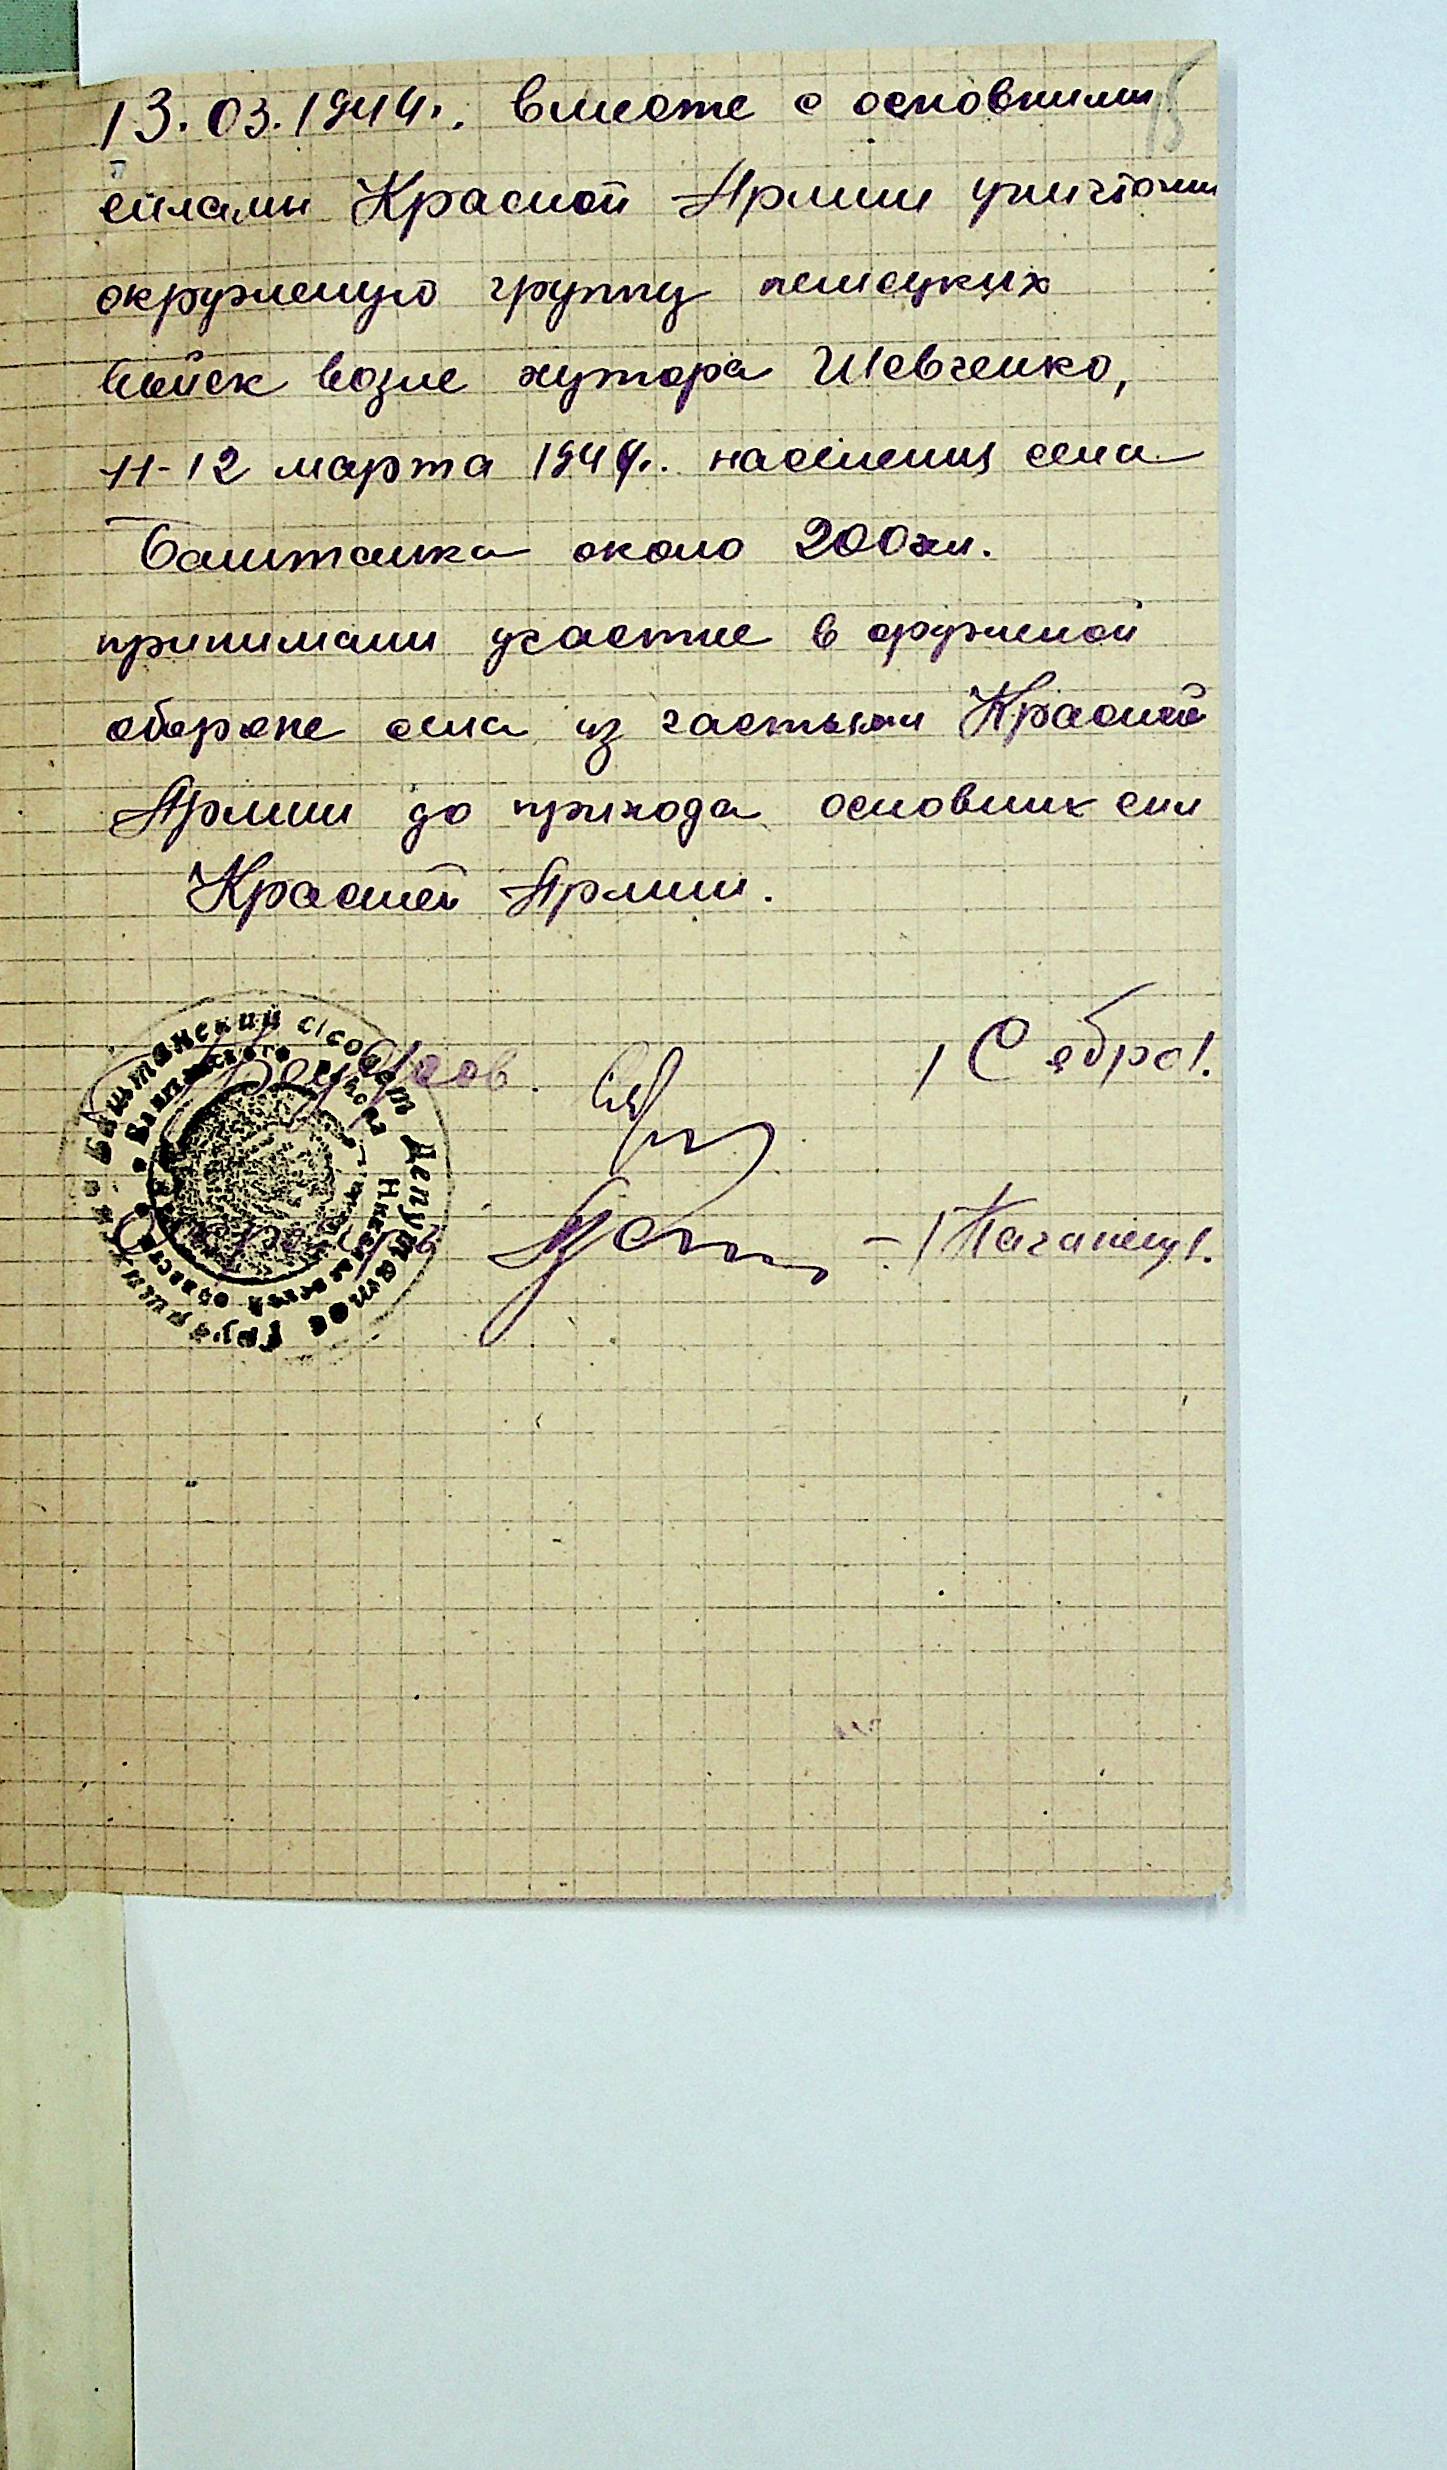 15
13.03.1944г. вместе с основними
силами Красной Армии уничтожи
окруженую группу немецких
войск возле хутора Шевченко,
11-12 марта 1944г. населения села
Баштанка около 200чл.
принимали участие в оруженой
обороне села из частями Красной
Армии до прихода основних сил
Красней Армии.
Пред. /Сябро/.
Секретарь - /Паганец/.
Баштанский с/совет Депутатов Трудящихся
Баштанского района Николаевской области